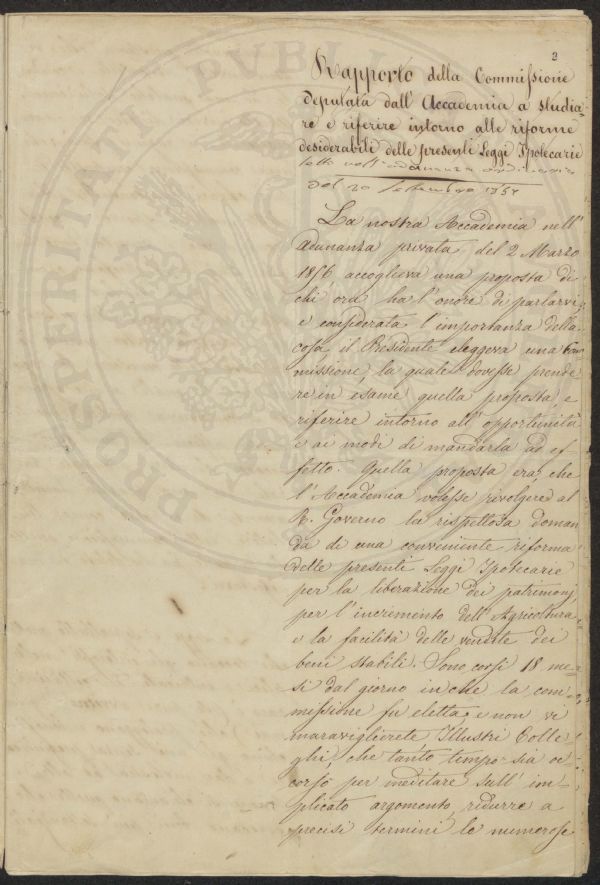 2
Rapporto della Commissione
deputata dall'Accademia a studia=
re e riferire intorno alle riforme
desiderabili delle presenti Leggi Ipotecarie
letto nell'adunanza ordinaria
del 20 Settembre 1857
La nostra Accademia nell'
Adunanza privata del 2 Marzo
1856 accoglieva una proposta di
chi ora ha l'onore di parlarvi,
e considerata l'importanza della
cosa, il Presidente eleggeva una Com
missione, la quale dovesse prende
re in esame quella proposta e
riferire intorno all'opportunità
e ai modi di mandarla ad ef
fetto. Quella proposta era, che
l'Accademia volesse rivolgere al
R. Governo la rispettosa doman
da di una conveniente riforma
delle presenti Leggi Ipotecarie
per la liberazione dei patrimonj
per l'incremento dell'Agricoltura
e la facilità delle vendite dei
beni stabili. Sono corsi 18 me=
si dal giorno in che la com=
missione fu eletta, e non vi
maraviglierete Illustri Colle=
ghi, che tanto tempo sia oc
corso per meditare sull'im=
plicato argomento, ridurre a
precisi termini le numerose
PROSPERITATI PVBLI